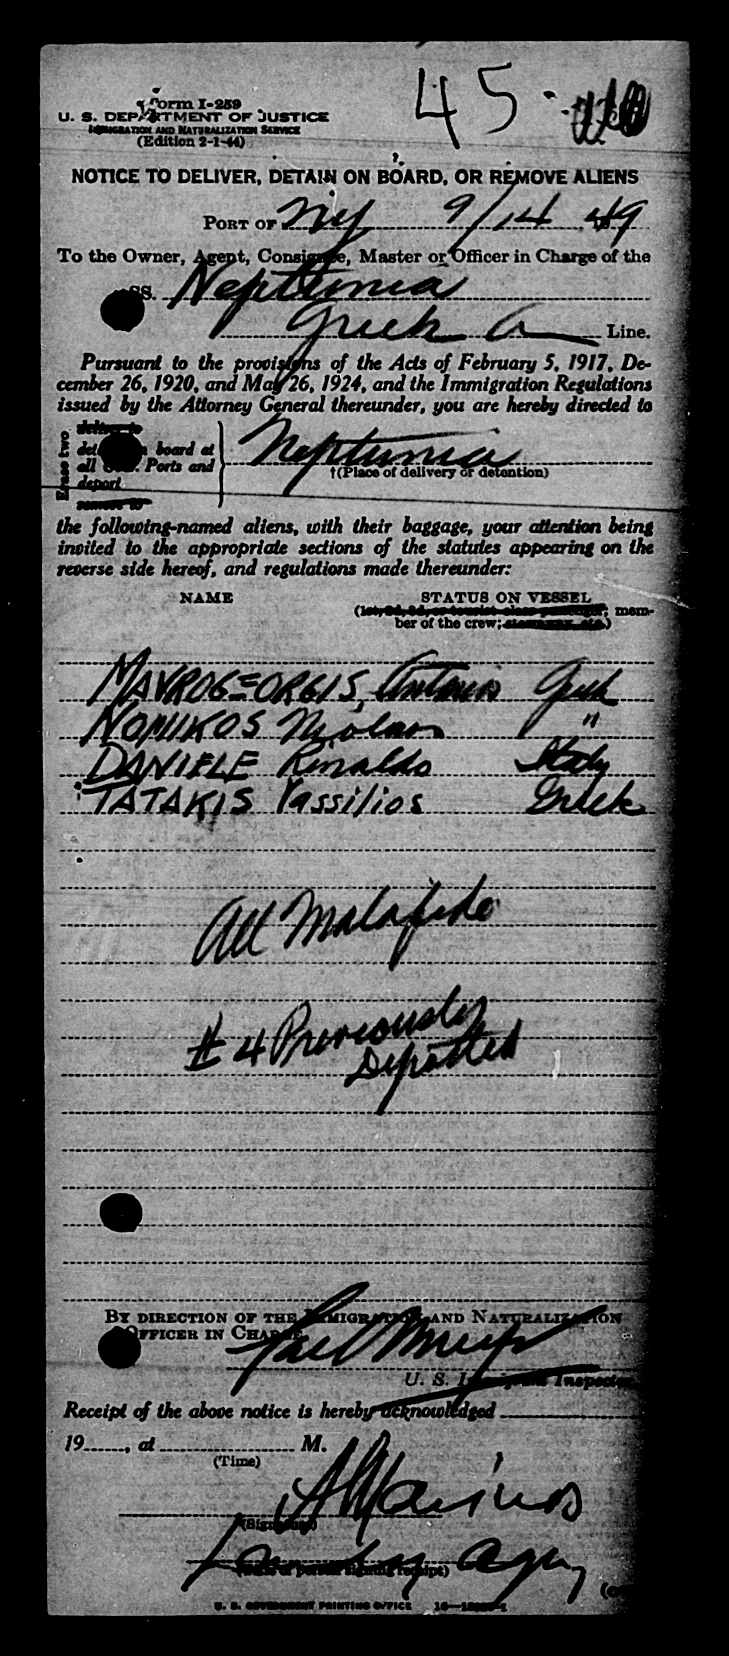 45.
Form I-259
U. S. DEPARTMENT OF JUSTICE
IMMIGRATION AND NATURALIZATION SERVICE
(Edition 2-1-44)
NOTICE TO DELIVER, DETAIN ON BOARD, OR REMOVE ALIENS
PORT OF NY 9/14 49
To the Owner, Agent, Consignee, Master or Officer in Charge of the
SS. Neptunia
Greek Line.
Pursuant to the provisions of the Acts of February 5, 1917, De-
cember 26, 1920, and May 26, 1924, and the Immigration Regulations
issued by the Attorney General thereunder, you are hereby directed to
Erase two
deliver to
detain on board at
all U.S. Ports and
deport
remove to
Neptunia
†(Place of delivery or detention)
the following-named aliens, with their baggage, your attention being
invited to the appropriate sections of the statutes appearing on the
reverse side hereof, and regulations made thereunder:
NAME STATUS ON VESSEL
(1st, 2d, 3d, or tourist class passenger; mem-
ber of the crew; stowaway, etc.)
MAVROGEORGIS, Antonio Greek
NOMIKOS Nicolaos "
DANIELE Rinaldo Italy
TATAKIS Vassilios Greek
All Malafide
# 4 Previously
Deported
BY DIRECTION OF THE IMMIGRATION AND NATURALIZATION
OFFICER IN CHARGE
U. S. Immigrant Inspector
Receipt of the above notice is hereby acknowledged
19 , at M.
(Time)
(Signature)
(Title of person signing receipt)
U. S. GOVERNMENT PRINTING OFFICE